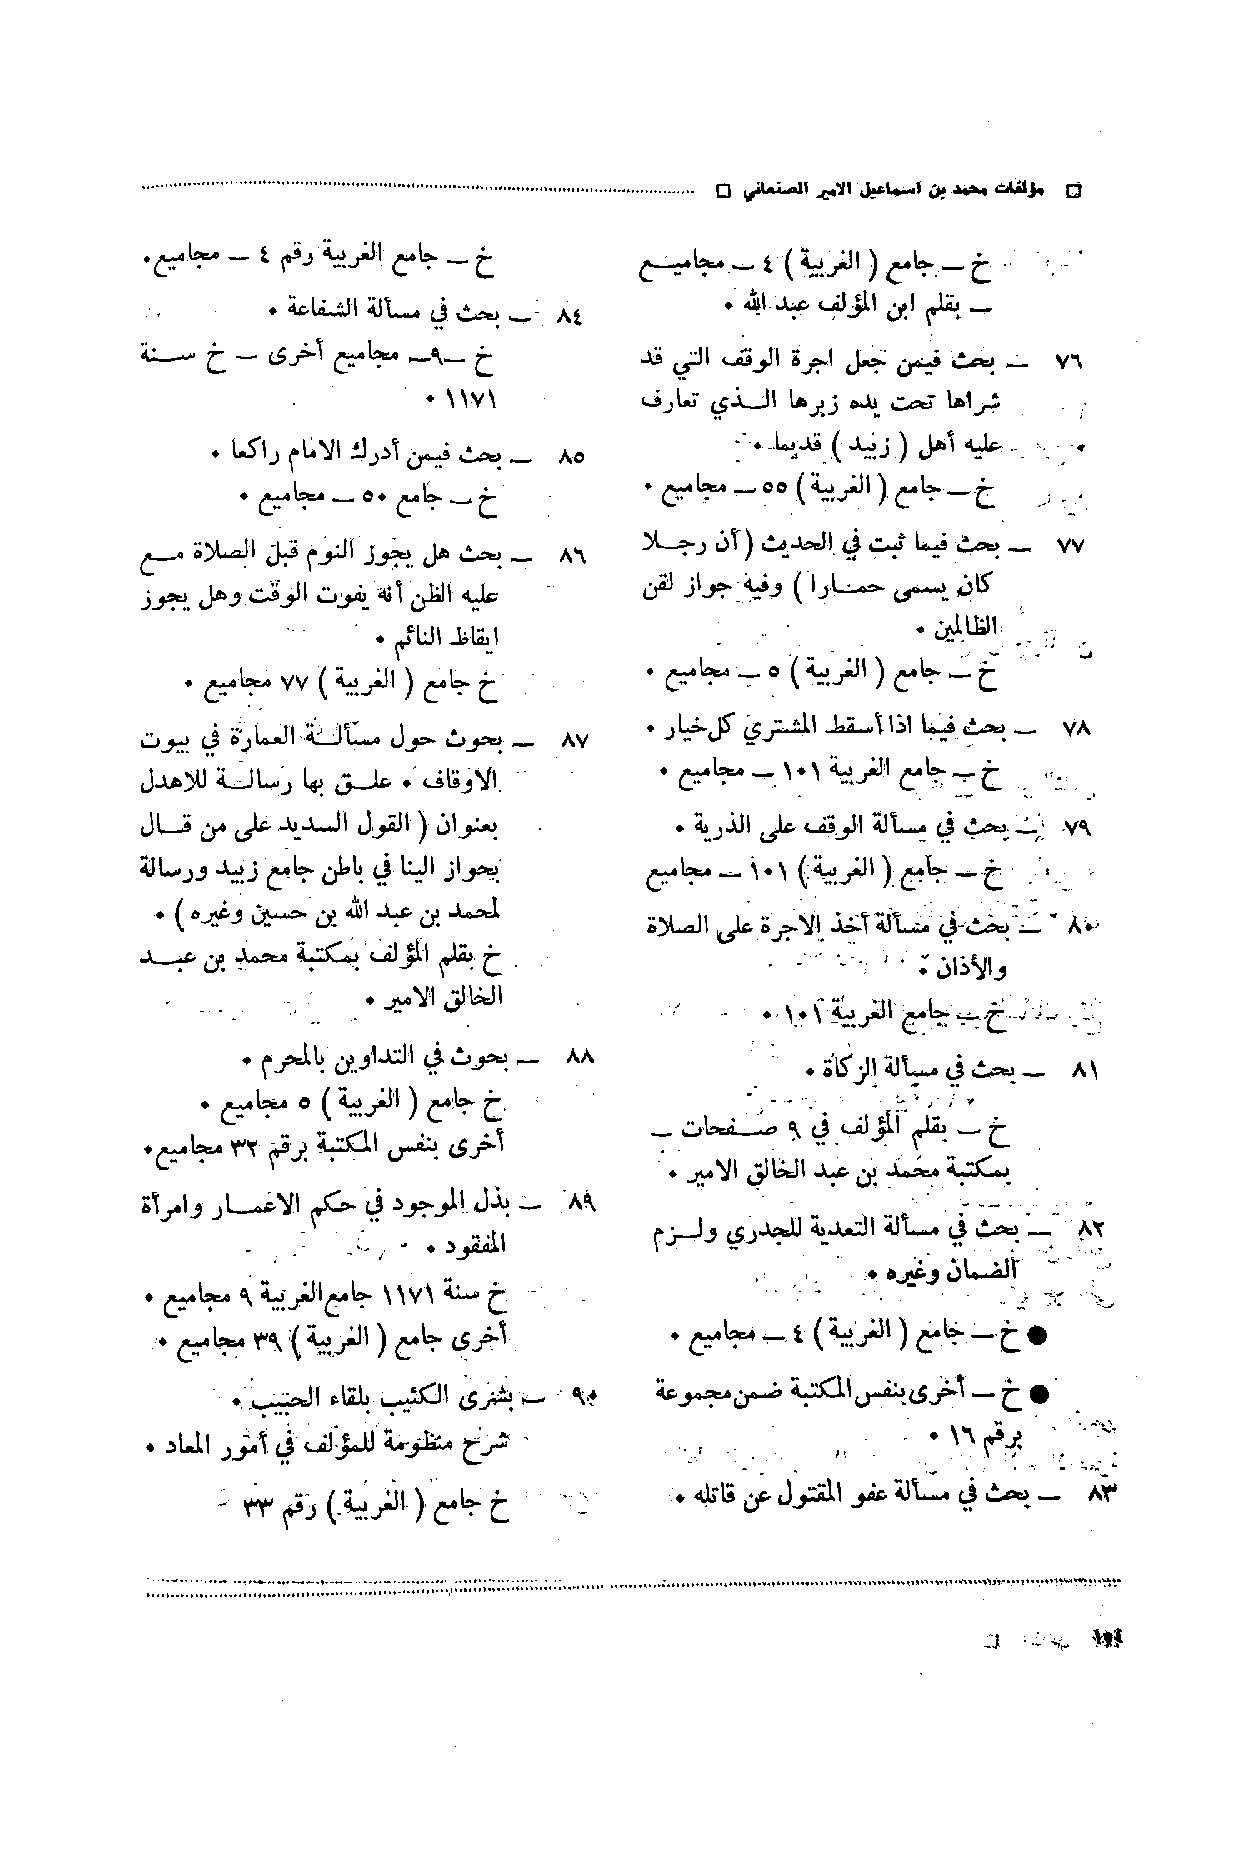 □ مؤلفات محمد بن اسماعيل الامير الصنعاني □
خ ــ جامع ( الغربية ) ٤ ــ مجاميــع
ــ بقلم ابن المؤلف عبد الله ٠
٧٦ ــ بحث فيمن جعل اجرة الوقف التي قد
شراها تحت يده زبرها الــذي تعارف
عليه أهل ( زبيد ) قديما ٠
خ ــ جامع ( الغربية ) ٥٥ ــ مجاميع ٠
٧٧ ــ بحث فيما ثبت في الحديث ( أن رجــلا
كان يسمى حمــارا ) وفيه جواز لقن
الظالمين ٠
خ ــ جامع ( الغربية ) ٥ ــ مجاميع ٠
٧٨ ــ بحث فيما اذا أسقط المشتري كل خيار ٠
خ ــ جامع الغربية ١٠١ ــ مجاميع ٠
٧٩ ــ بحث في مسألة الوقف على الذرية ٠
خ ــ جامع ( الغربية ) ١٠١ ــ مجاميع
٨٠ ــ بحث في مسألة أخذ الاجرة على الصلاة
والأذان ٠
خ ــ جامع الغربية ١٠١ ٠
٨١ ــ بحث في مسألة الزكاة ٠
خ ــ بقلم المؤلف في ٩ صــفحات ــ
بمكتبة محمد بن عبد الخالق الامير ٠
٨٢ ــ بحث في مسألة التعدية للجدري ولــزم
الضمان وغيره ٠
● خ ــ جامع ( الغربية ) ٤ ــ مجاميع ٠
● خ ــ أخرى بنفس المكتبة ضمن مجموعة
برقم ١٦ ٠
٨٣ ــ بحث في مسألة عفو المقتول عن قاتله ٠
خ ــ جامع الغربية رقم ٤ ــ مجاميع ٠
٨٤ ــ بحث في مسألة الشفاعة ٠
خ ــ٩ــ مجاميع أخرى ــ خ ســنة
١١٧١ ٠
٨٥ ــ بحث فيمن أدرك الامام راكعا ٠
خ ــ جامع ٥٠ ــ مجاميع ٠
٨٦ ــ بحث هل يجوز النوم قبل الصلاة مــع
عليه الظن أنه يفوت الوقت وهل يجوز
ايقاظ النائم ٠
خ جامع ( الغربية ) ٧٧ مجاميع ٠
٨٧ ــ بحوث حول مسألــة العمارة في بيوت
الاوقاف ٠ علــق بها رسالــة للاهدل
بعنوان ( القول السديد على من قــال
بجواز البنا في باطن جامع زبيد ورسالة
لمحمد بن عبد الله بن حسين وغيره ) ٠
خ بقلم المؤلف بمكتبة محمد بن عبــد
الخالق الامير ٠
٨٨ ــ بحوث في التداوين بالمحرم ٠
خ جامع ( الغربية ) ٥ مجاميع ٠
أخرى بنفس المكتبة برقم ٣٢ مجاميع ٠
٨٩ ــ بذل الموجود في حكم الاعمــار وامرأة
المفقود ٠
خ سنة ١١٧١ جامع الغربية ٩ مجاميع ٠
أخرى جامع ( الغربية ) ٣٩ مجاميع ٠
٩٠ ــ بشرى الكئيب بلقاء الحبيب ٠
شرح منظومة للمؤلف في أمور المعاد ٠
خ جامع ( الغربية ) رقم ٣٣ -